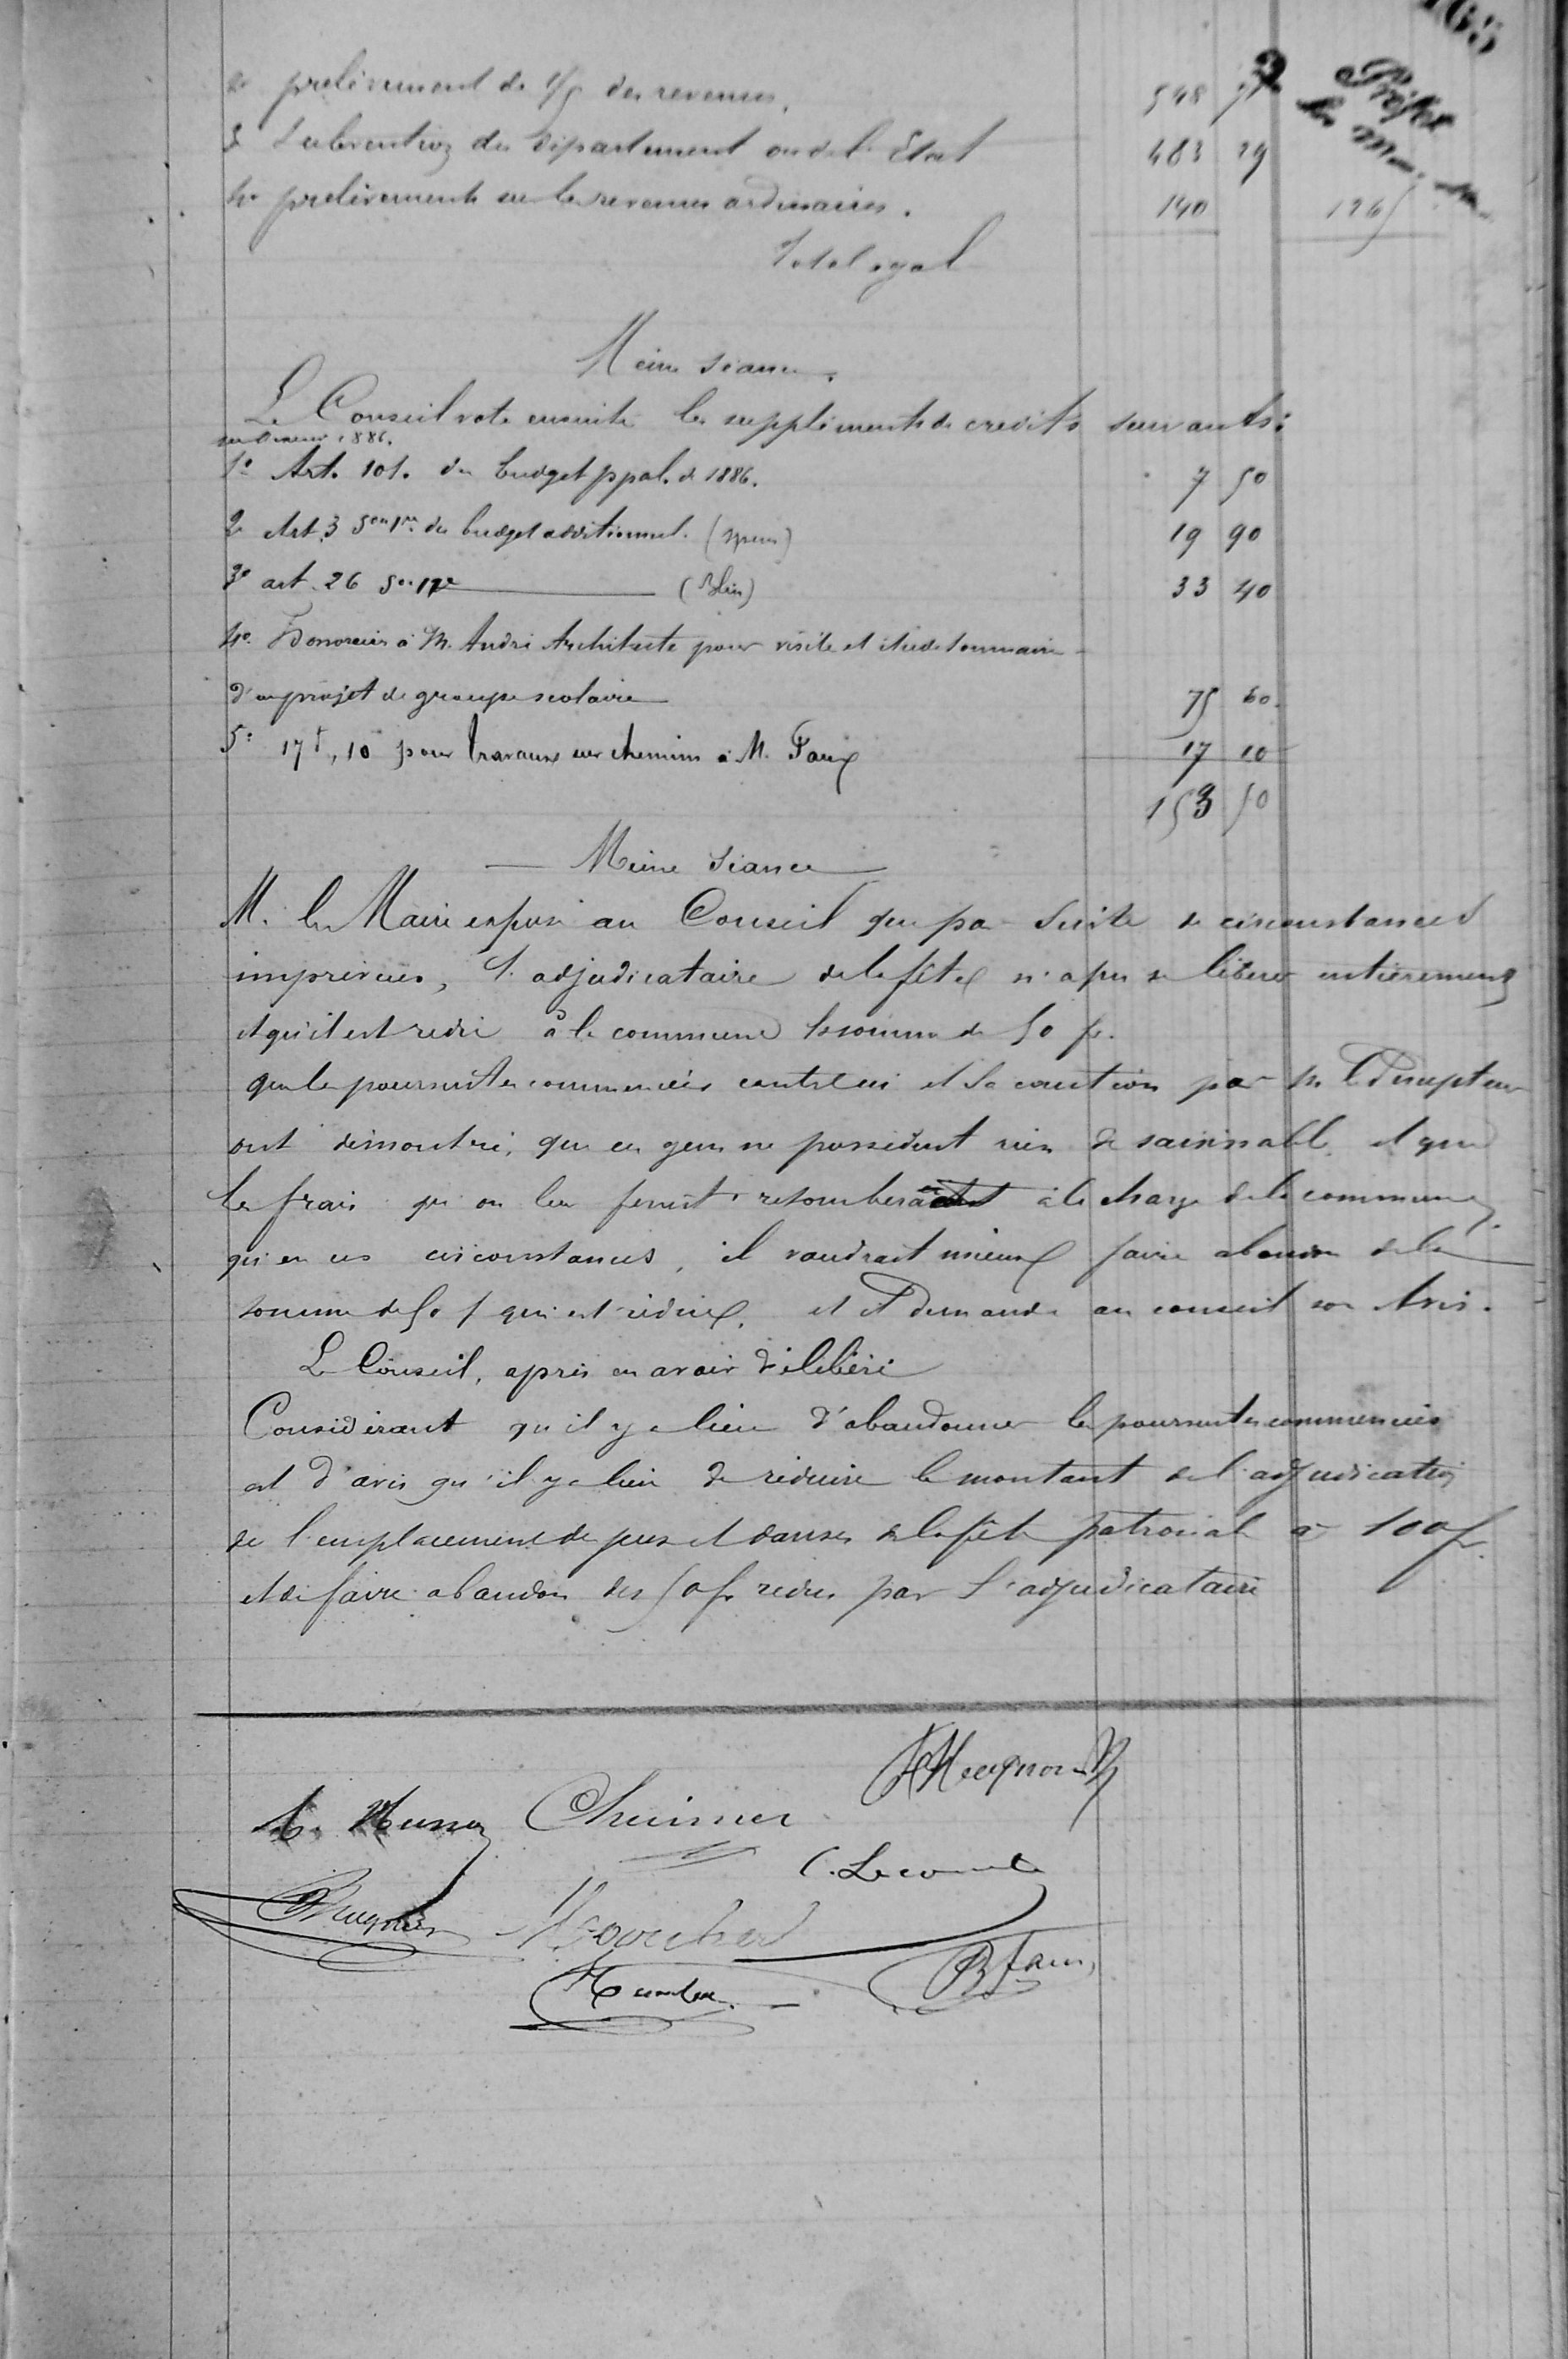 165
Préfet
2o prelèvement de 1/5 des revenus, 548
3 Subvention du Département ou de l'Etat 483 29
4o prelèvements sur les revenus ordinaires. 140 1265
Total egal
Même séance.
Le Conseil vote ensuite les suppléments de credits suivants:
sur 1886.
1o Art. 101. du budget ppal. de 1886. 7 50
2o Art. 3 Son 1re du budget additionnel. 19 90
3o art. 26 Son 1re (Blin) 33 40
4o Honoraires à M. André Architecte pour visite et étude sommaire
d'un projet de groupe scolaire 75 60
5o 17f,10 pour travaux sur chemins à M. Faux 17 10
153 50
Même séance
M. le Maire expose au Conseil que par suite de circonstances
imprévues, l'adjudicataire de la fête n'a pu se libérer entièrement
et qu'il est redû à la commune la somme de 50 fr.
que les poursuites commencées contre lui et sa caution par M. le Percepteur
ont démontré, que ces gens ne possèdent rien de saisissable et que
les frais qu'on leur ferait retomberaient à la charge de la commune,
qu'en ces circonstances, il vaudrait mieux faire abandon de la
somme de 50 f qui est redue, et il demande au conseil son Avis.
Le Conseil, après en avoir délibéré
Considérant qu'il y a lieu d'abandonner les poursuites commencées
est d'avis qu'il y a lieu de réduire le montant de l'adjudication
de l'emplacement de jeux et danses de la fête patronal à 100 fr.
et de faire abandon des 50 fr. redus par l'adjudicataire
C. Lecomte